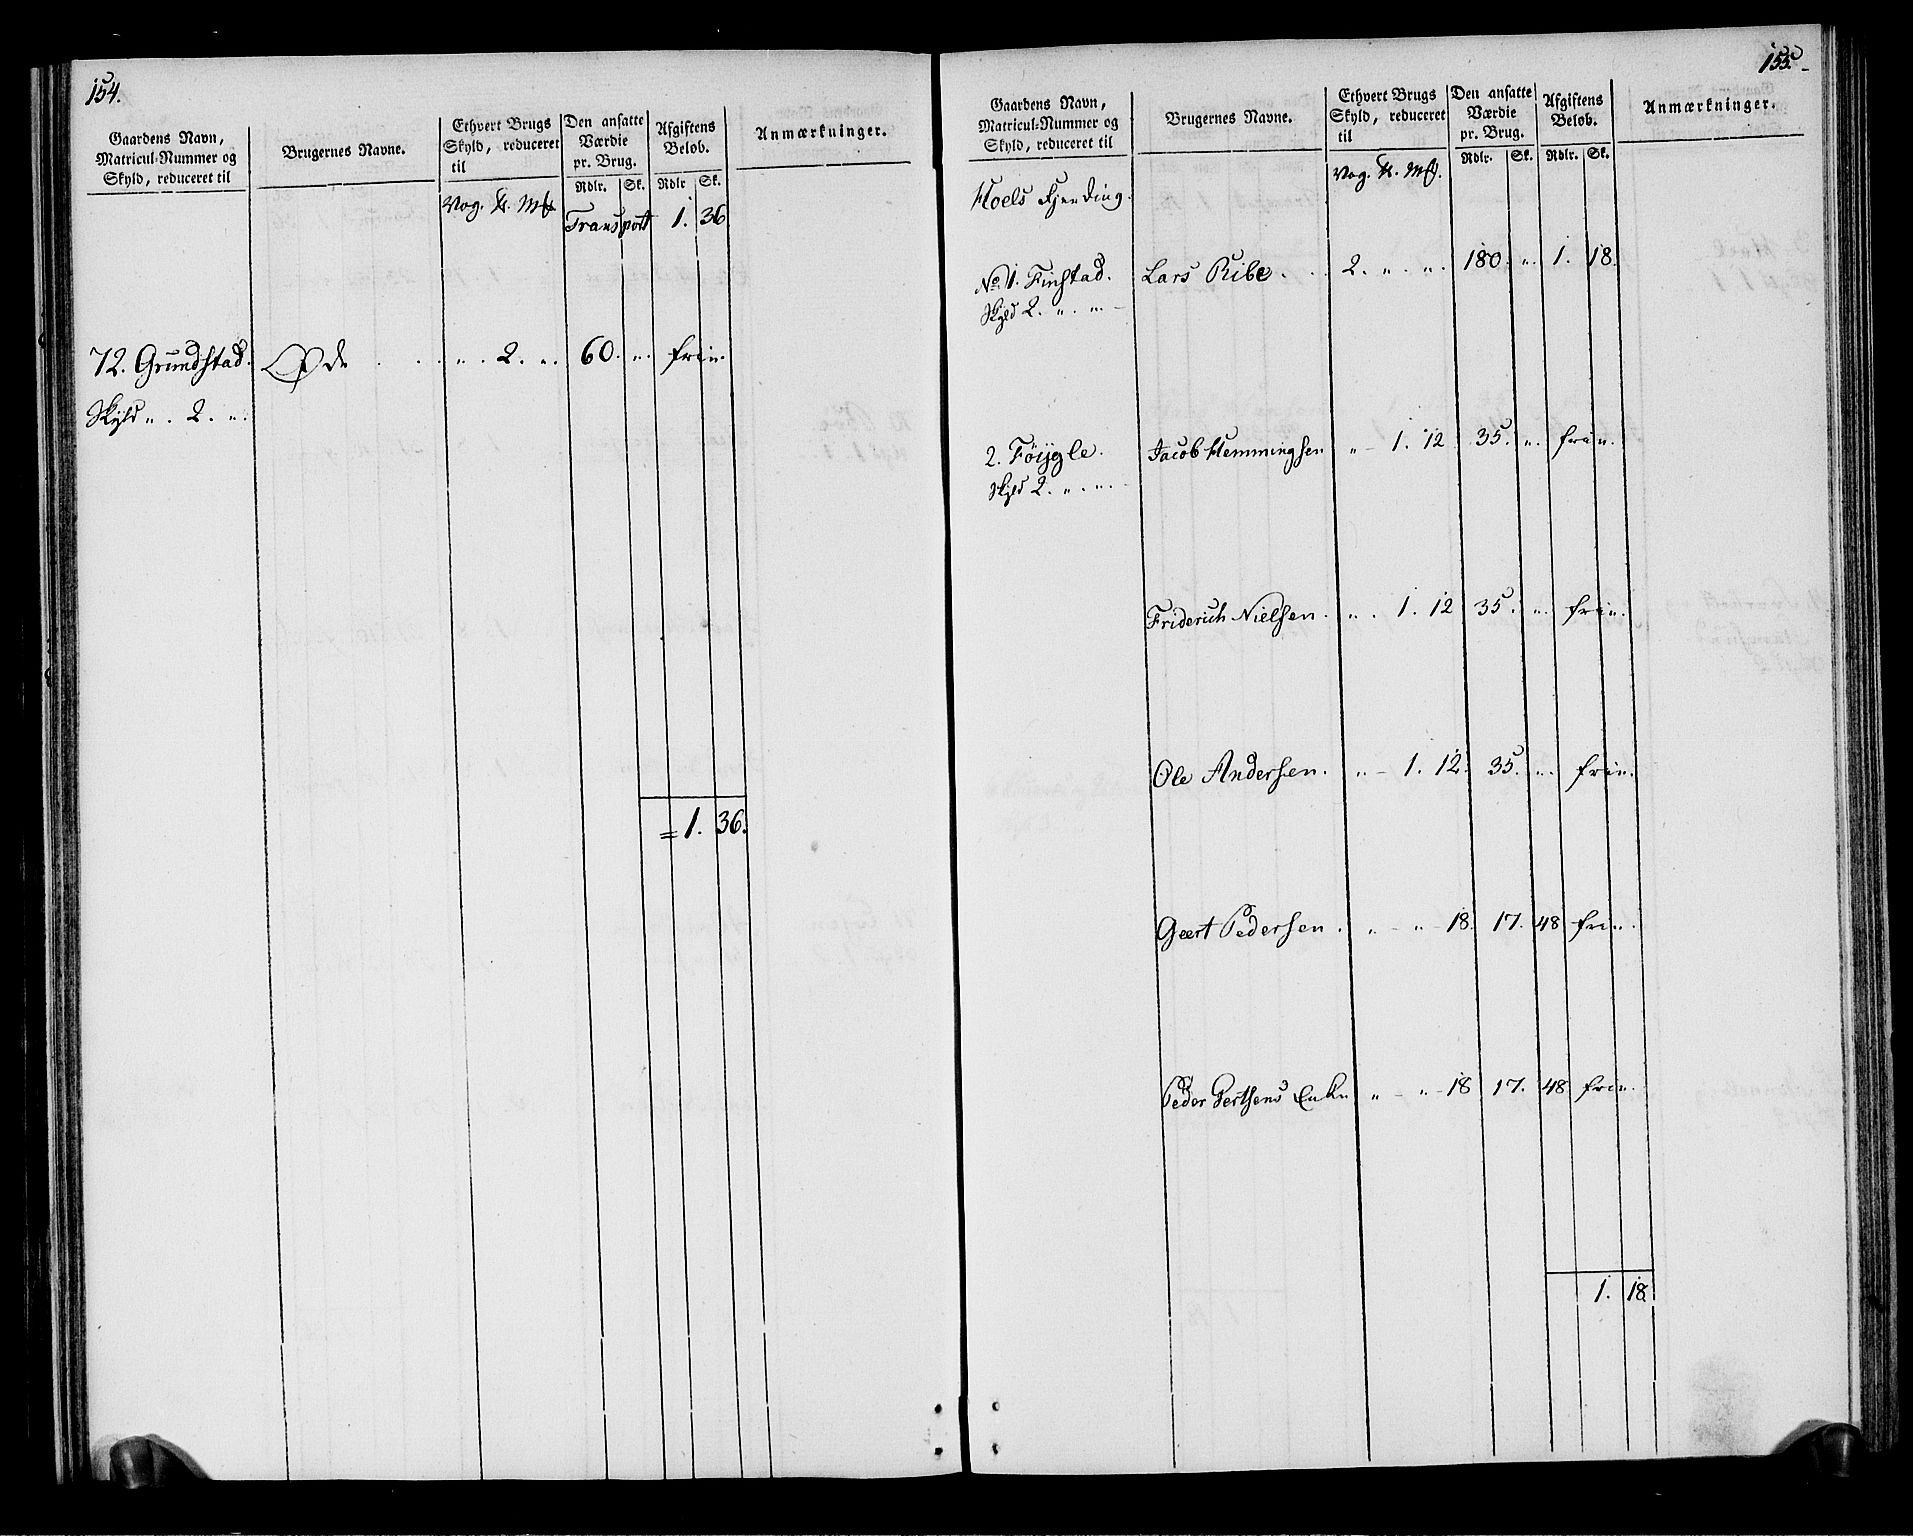 154.
Gaardens Navn, Matricul-Nummer og Skyld, reduceret til
Brugernes Navne.
Ethvert Brugs Skyld, reduceret til
Den ansatte Værdie pr. Brug.
Afgiftens Beløb.
Anmærkninger.
Rdlr. Sk. Rdlr Sk.
Vog.
Transport 1. 36
72. Grundstad. Øde . . . „ . 2. „. 60. „. frie.
Skyld „ . 2. „.
= 1. 36.
155.
Gaardens Navn, Matricul-Nummer og Skyld, reduceret til
Brugernes Navne.
Ethvert Brugs Skyld, reduceret til
Den ansatte Værdie pr. Brug.
Afgiftens Beløb.
Anmærkninger.
Rdlr. Sk. Rdlr. Sk.
Vog.
Hoels Fjerding.
No 1. Finstad. Lars Ribe . . 2. „ . „. 180. „. 1. 18.
Skyld 2. „ . „. –
2. Føygle. Jacob Hemmingsen „ – 1. 12 35. „. frie.
Skyld 2. „ . „. –
Friderich Nielsen. „ . 1. 12 35. „. frie.
Ole Andersen. „ – 1. 12. 35. „. frie.
Geert Pedersen . „ – „ – 18. 17. 48 frie.
Peder Gertsens Enke „ – „ – 18 17. 48 frie.
1. 18.